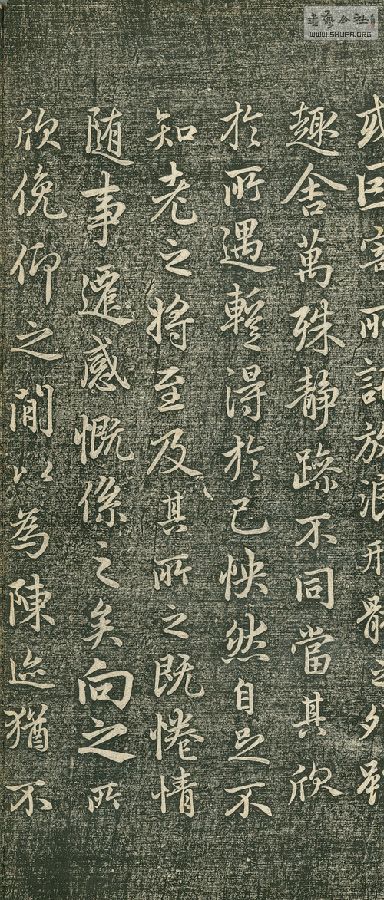 或因寄所託放浪形骸之外雖
趣舍萬殊靜躁不同當其欣
於所遇蹔得於己怏然自足不
知老之將至及其所之既惓情
隨事遷感慨係之矣向之所
欣俛仰之閒以為陳迹猶不
WWW.SHUFA.ORG